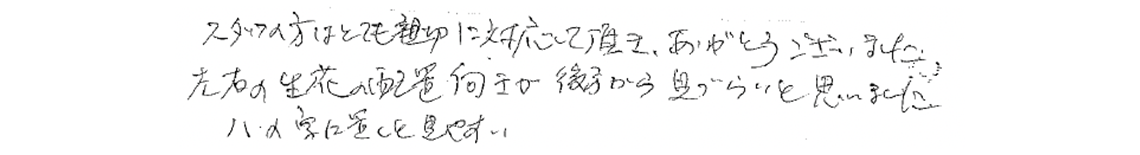 スタッフの方はとても親切に対応して頂き、ありがとうございました。
左右の生花の配置向きが後方から見づらいと思いました
ハの字に置くと見やすい